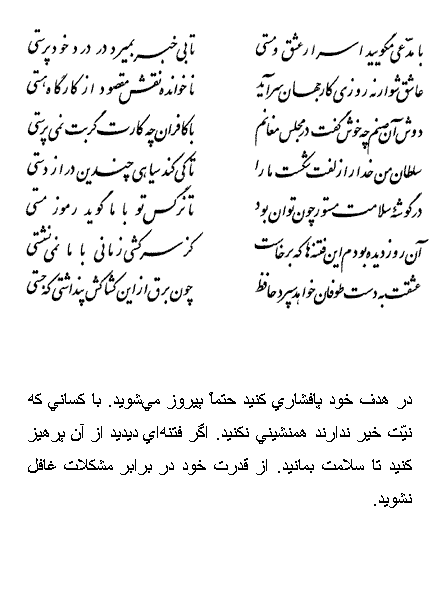 با مدّعی مگویید اسرار عشق و مستی تا بی‌خبر بمیرد در درد خودپرستی
عاشق شو ار نه روزی کار جهان سرآید ناخوانده نقش مقصود از کارگاه هستی
دوش آن صنم چه خوش گفت در مجلس مغانم با کافران چه کارت گر بت نمی‌پرستی
سلطان من خدا را زلفت شکست ما را تا کی کند سیاهی چندین درازدستی
در گوشهٔ سلامت مستور چون توان بود تا نرگس تو با ما گوید رموز مستی
آن روز دیده بودم این فتنه‌ها که برخاست کز سرکشی زمانی با ما نمی‌نشستی
عشقت به دست طوفان خواهد سپرد حافظ چون برق ازین کشاکش پنداشتی که جستی
در هدف خود پافشاري کنيد حتماً پيروز مي‌شويد. با کساني که
نيّت خير ندارند همنشيني نکنيد. اگر فتنه‌اي ديديد از آن پرهيز
کنيد تا سلامت بمانيد. از قدرت خود در برابر مشکلات غافل
نشويد.